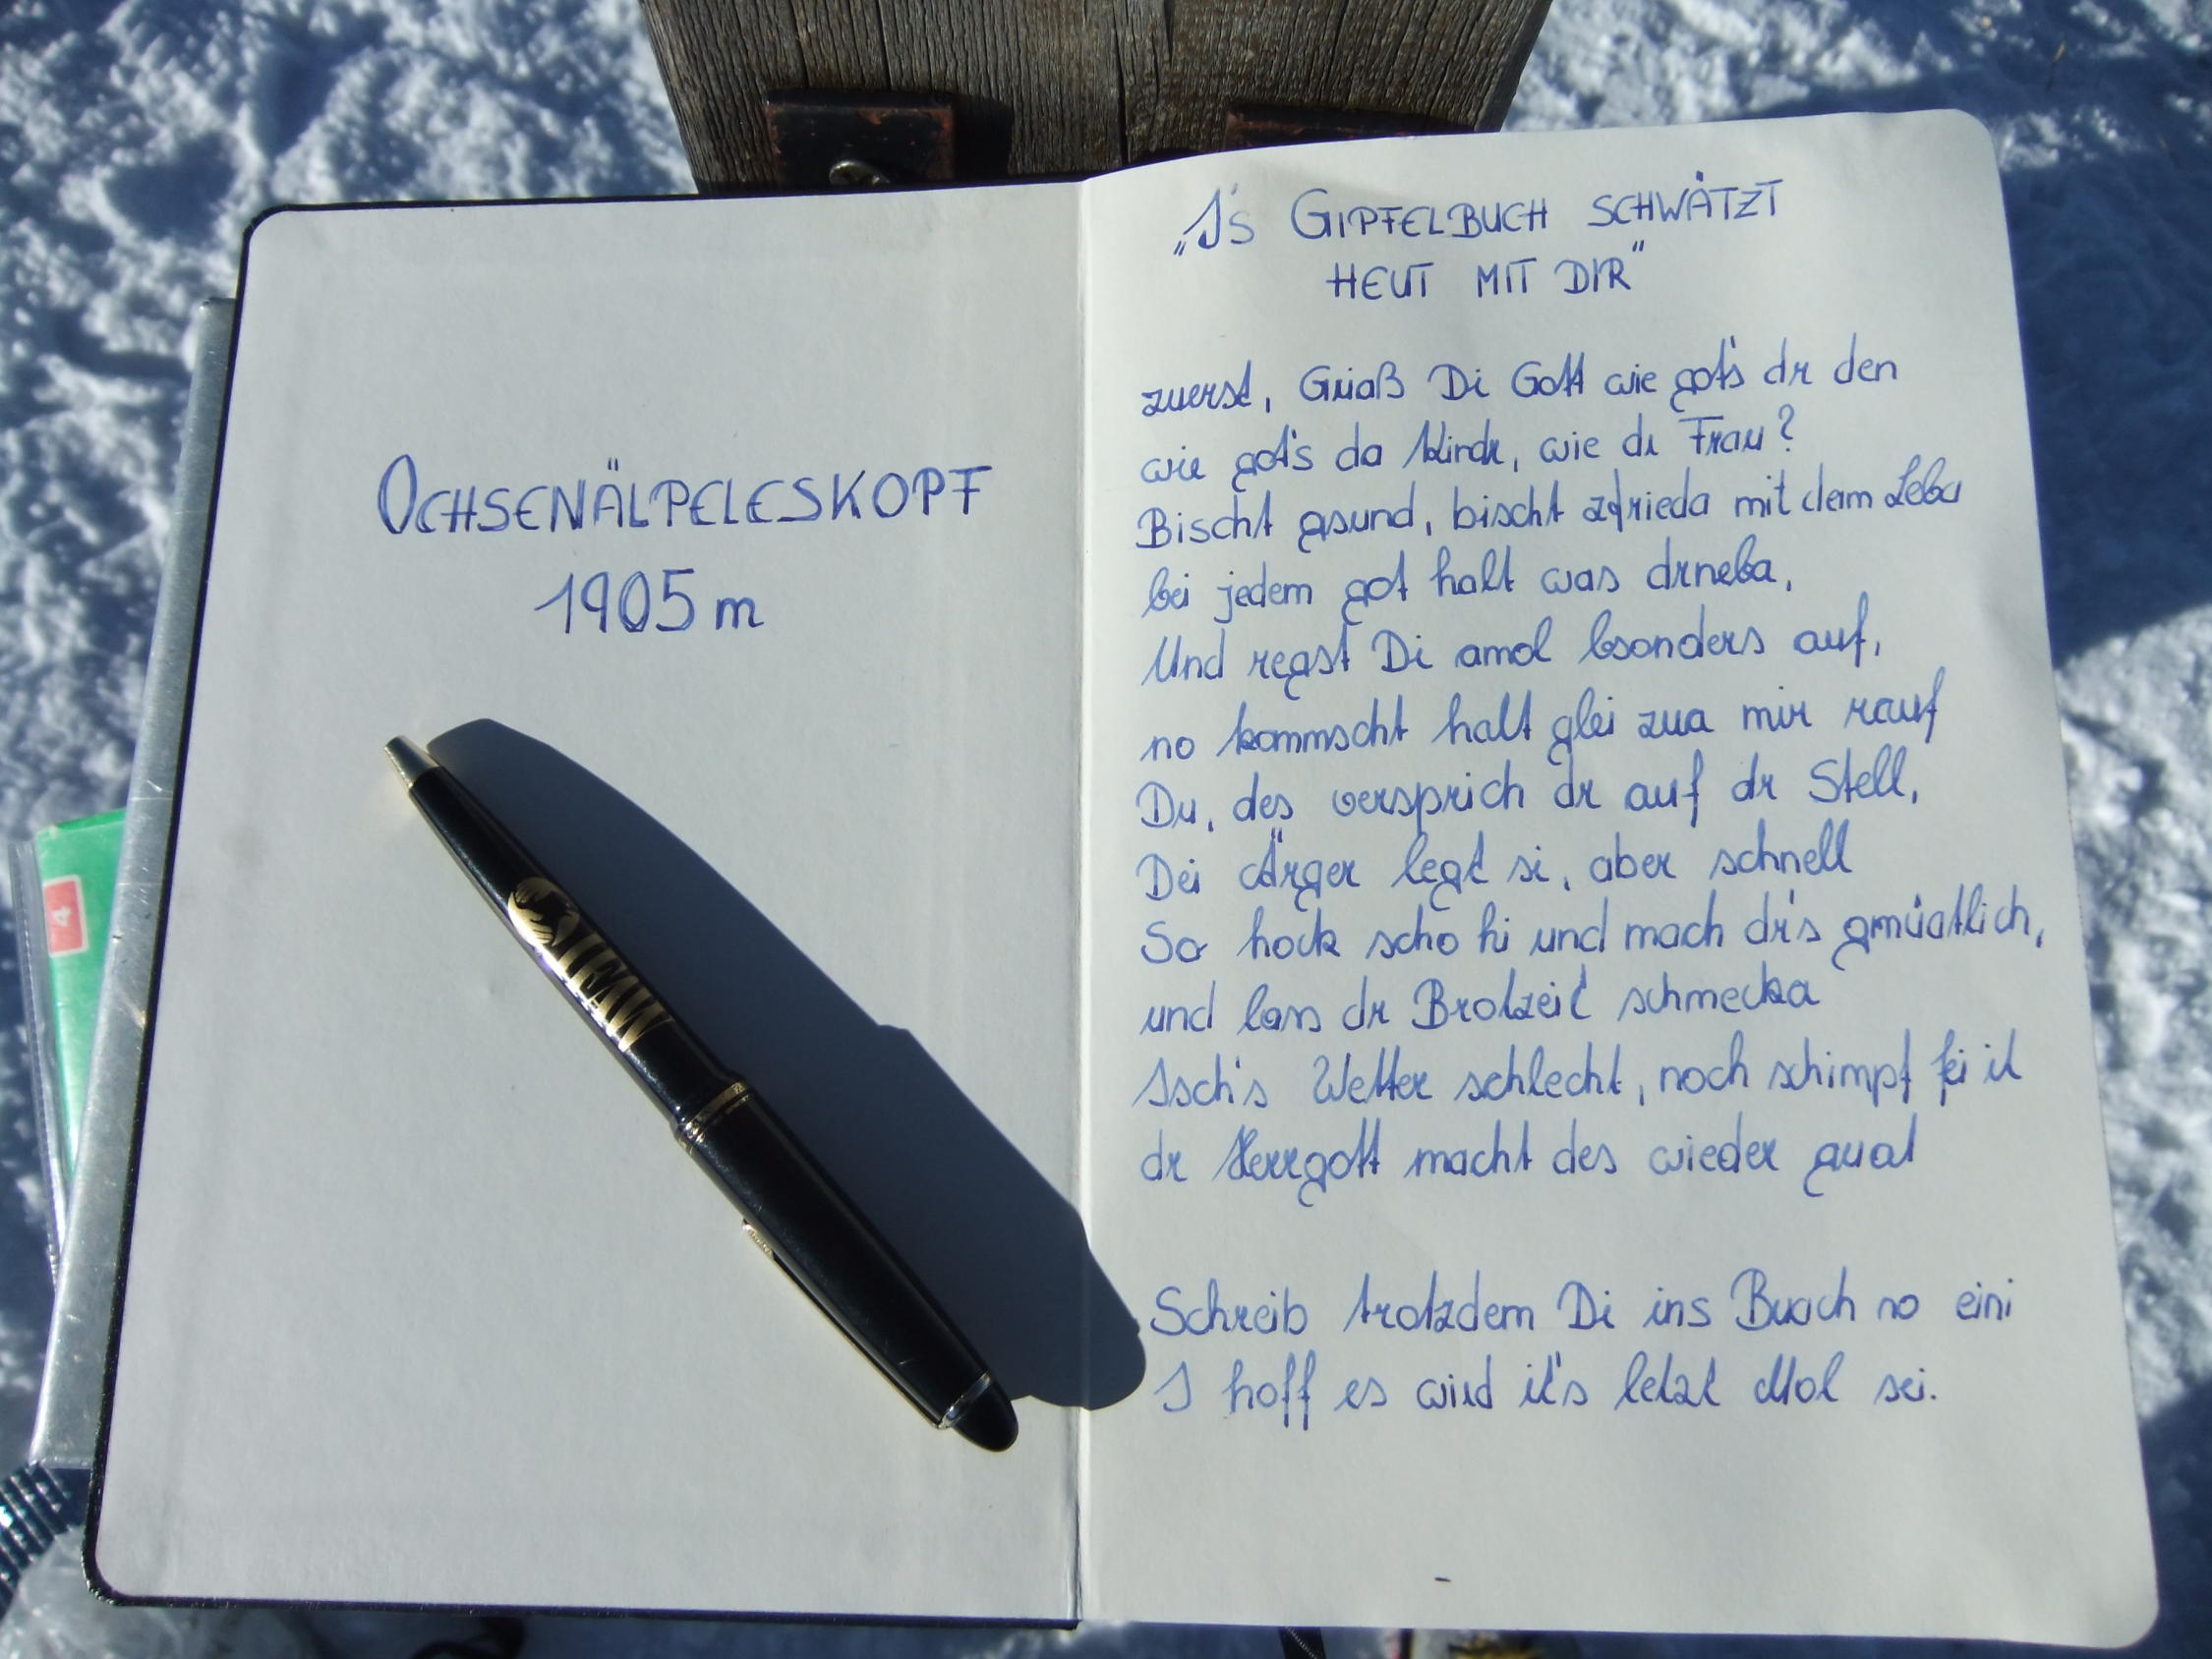 OCHSENÄLPELESKOPF
1905 m
TEAM
4
„I's GIPFELBUCH SCHWÄTZT
HEUT MIT DIR"
zuerst, Grüaß Di Gott wie got's dr den
wie got's da Kindr, wie di Frau?
Bischt gsund, bischt zfrieda mit deim Leba
bei jedem got halt was drneba,
Und regst Di amol bsonders auf,
no kommscht halt glei zua mir rauf
Du, des versprich dr auf dr Stell,
Dei Ärger legt si, aber schnell
So hock scho hi und mach dr's gmüatlich,
und lass dr Brotzeit schmecka
Isch's Wetter schlecht, noch schimpf fei it
dr Herrgott macht des wieder guat
Schreib trotzdem Di ins Buach no eini
I hoff es wird it's letzt Mol sei.